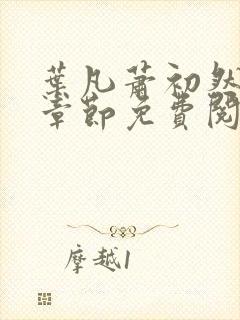 葉凡蕭初然
章節免費閱
摩越1